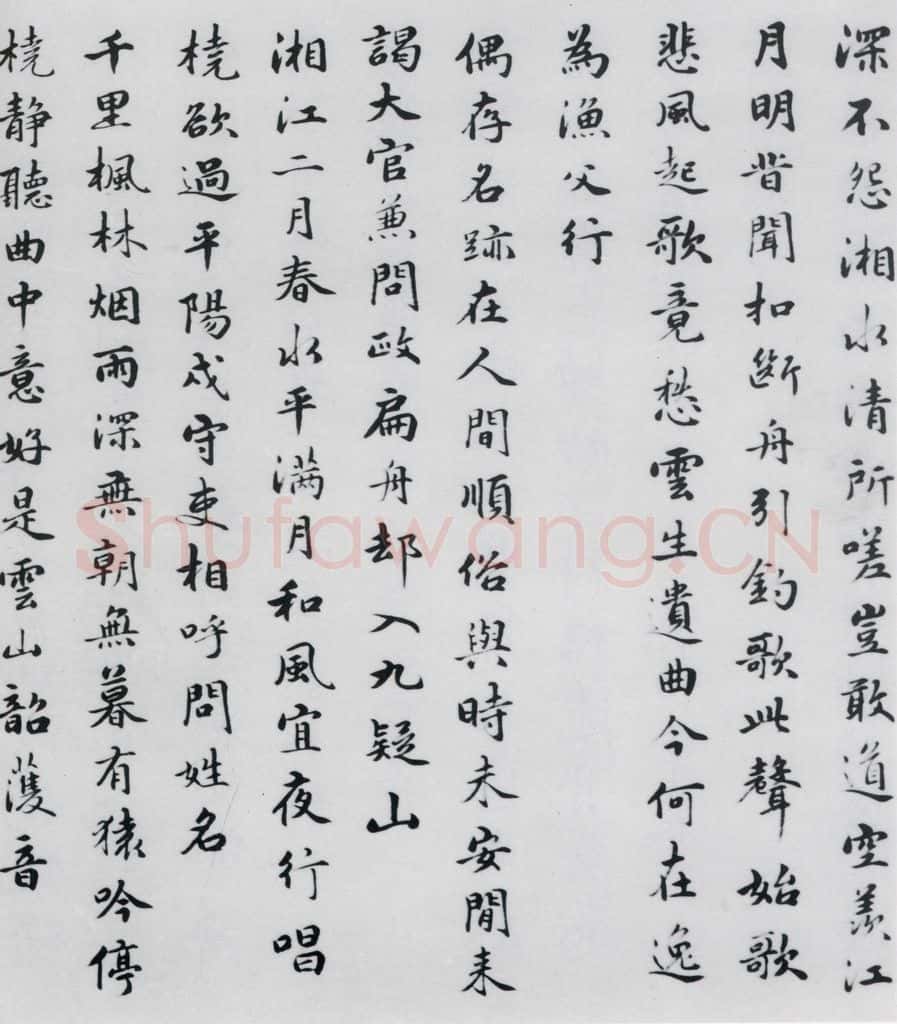 深不怨湘水清所嗟豈敢道空羨江
月明昔聞扣斷舟引釣歌此聲始歌
悲風起歌竟愁雲生遺曲今何在逸
為漁父行
偶存名跡在人間順俗與時未安閒来
謁大官兼問政扁舟却入九疑山
湘江二月春水平满月和風宜夜行唱
橈欲過平陽戍守吏相呼問姓名
千里楓林烟雨深無朝無暮有猿吟停
橈静聽曲中意好是雲山韶濩音
Shufawang.CN